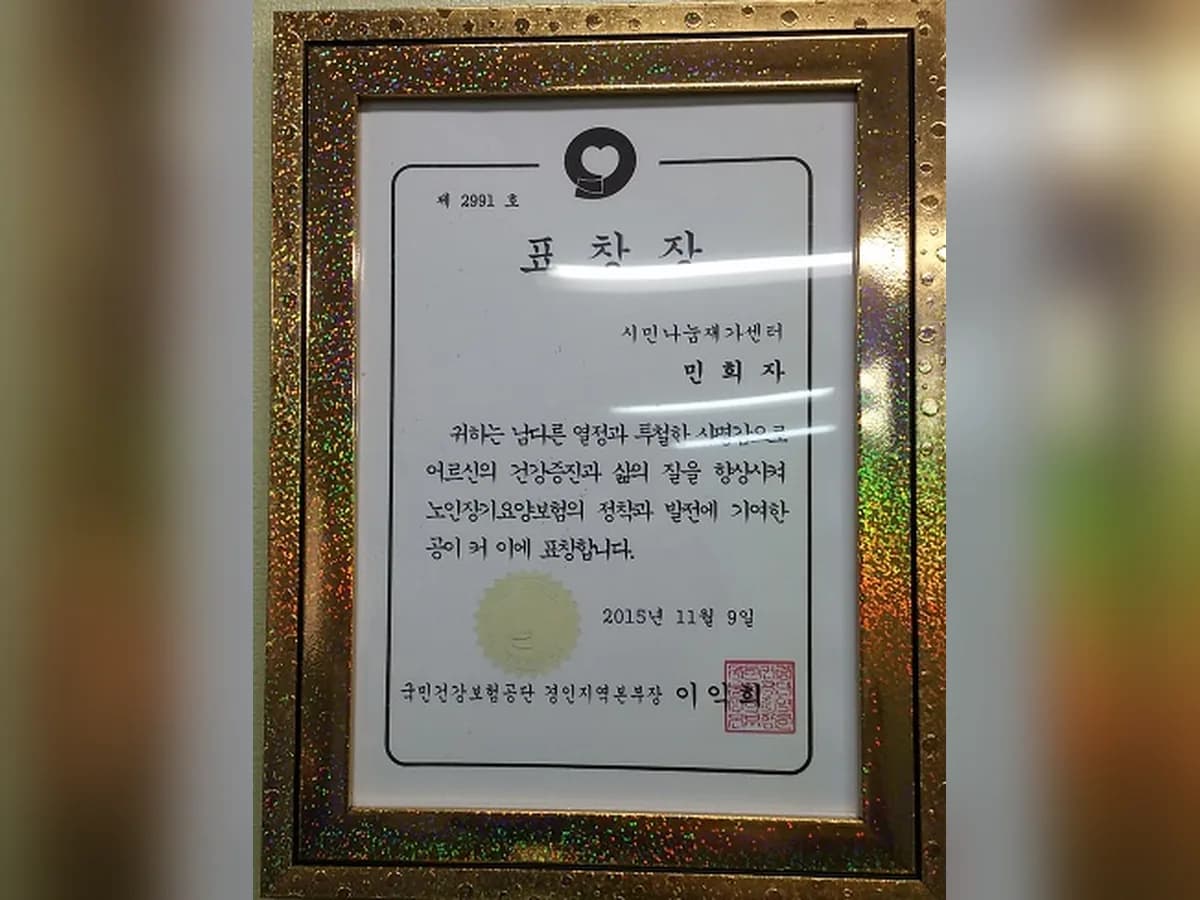 제 2991 호
표 창 장
시민나눔재가센터
민 희 자
귀하는 남다른 열정과 투철한 사명감으로
어르신의 건강증진과 삶의 질을 향상시켜
노인장기요양보험의 정착과 발전에 기여한
공이 커 이에 표창합니다.
2015년 11월 9일
국민건강보험공단 경인지역본부장 이익희